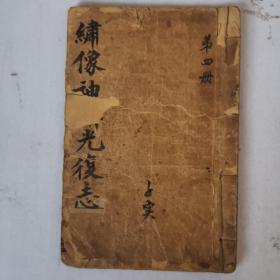 繡像神光復志
第四册
子实